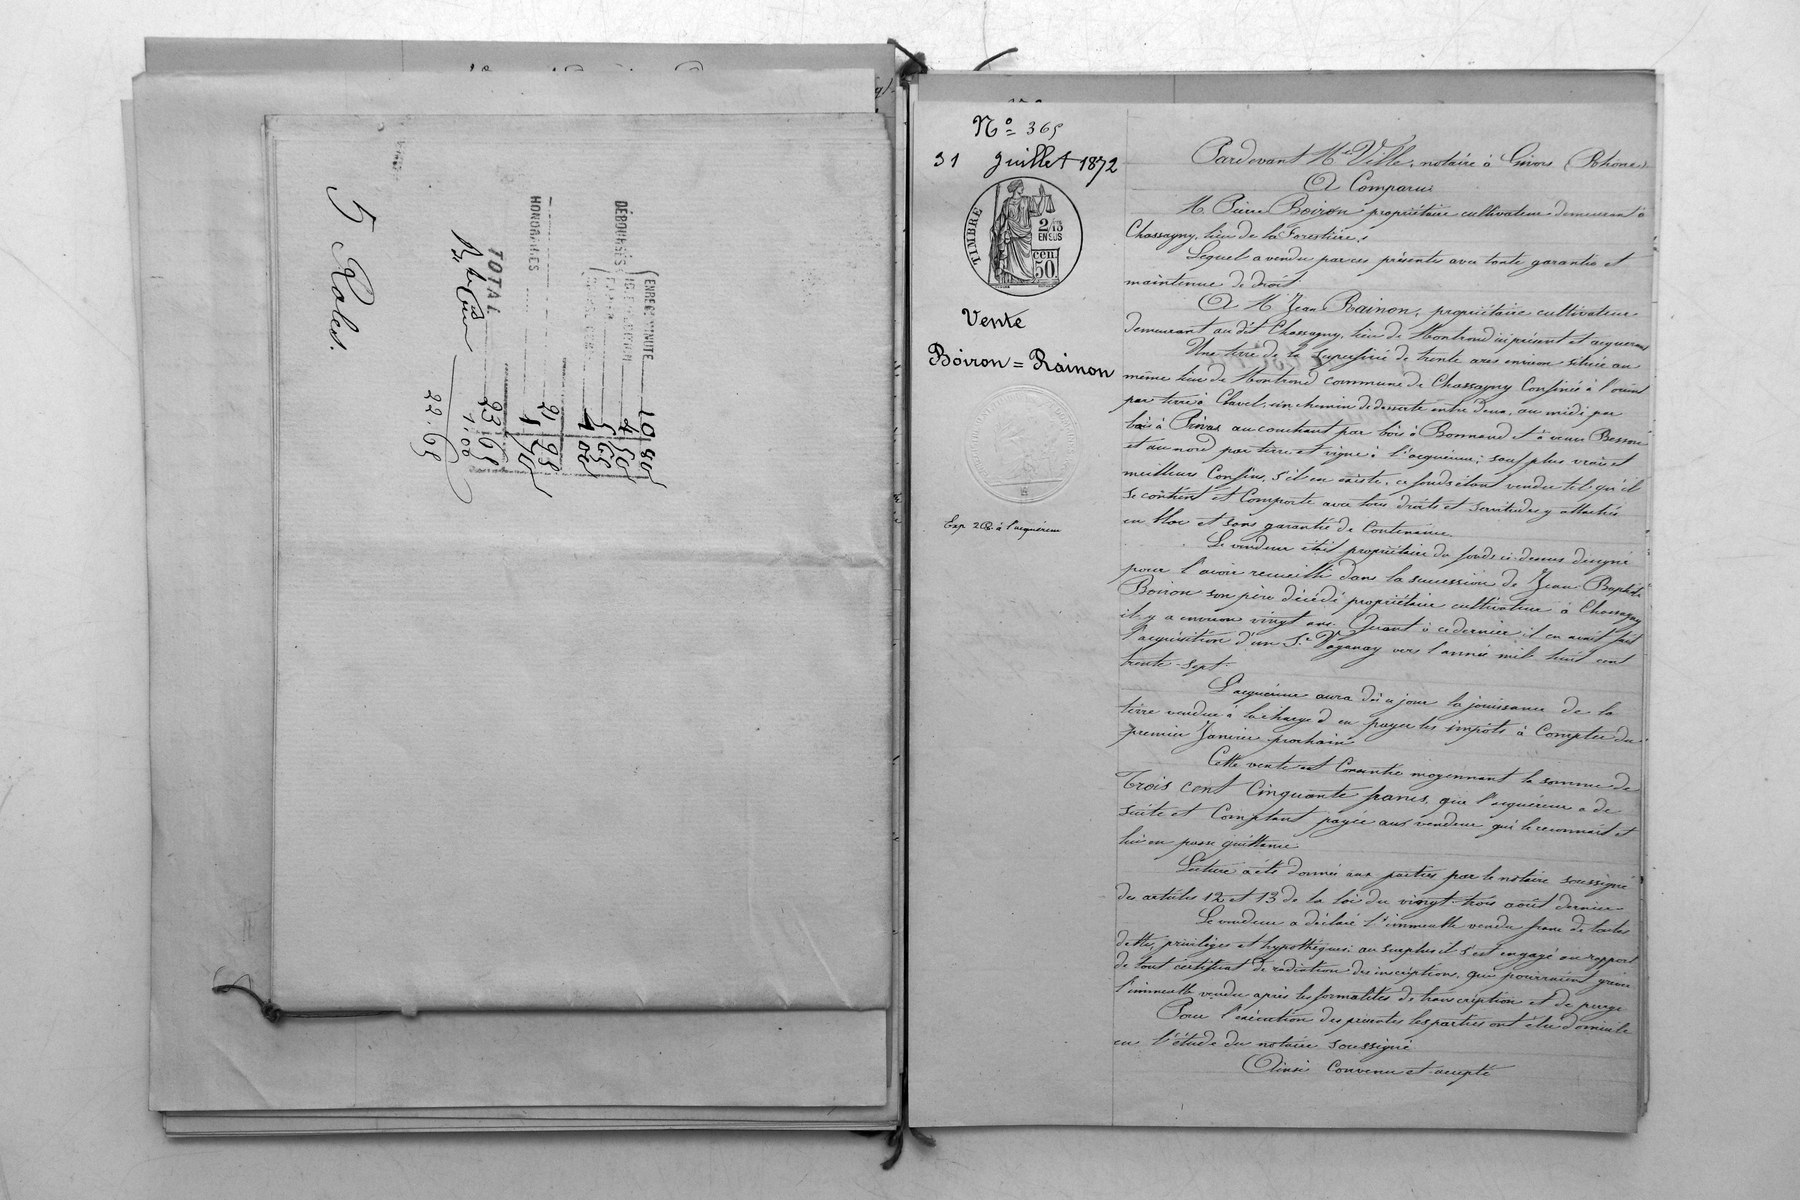 5 Roles.
DÉBOURSÉS
ENREG. MINUTE 10 80
4 50
PAPIER 5 65
1 00
21 95
HONORAIRES 1 70
TOTAL 23 65
1.00
22.65
Nº 365
31 Juillet 1872
TIMBRE
2/10
EN SUS
50 CEN.
Vente
Boiron = Rainon
Exp 2 R. à l'acquéreur
Pardevant Me Ville, notaire à Givors (Rhône)
A Comparu
M. Pierre Boiron propriétaire cultivateur demeurant à
Chassagny, lieu de la Forestière.
Lequel a vendu par ces présentes avec toute garantie et
maintenue de droit.
A M. Jean Rainon, propriétaire cultivateur
demeurant au dit Chassagny, lieu de Montrond ici présent et acquéreur
Une terre de la superficie de trente ares environ située au
même lieu de Montrond commune de Chassagny Confinée à l'orient
par terre à Clavel, un chemin de desserte entre deux, au midi par
bois à Privas au couchant par bois à Bonnand et à veuve Besson
et au nord par terre et vigne à l'acquéreur; sauf plus vrais et
meilleurs Confins, s'il en existe, ce fonds étant vendu tel qu'il
se contient et Comporte avec tous droits et servitudes y attachés
en bloc et sans garantie de Contenance.
Le vendeur était propriétaire du fonds ci-dessus désigné
pour l'avoir recueilli dans la succession de Jean Baptiste
Boiron son père décédé propriétaire cultivateur à Chassagny
il y a environ vingt ans. Quant à ce dernier il en avait fait
l'acquisition d'un Sr Voganay vers l'année mil huit cent
trente-sept.
L'acquéreur aura dès ce jour la jouissance de la
terre vendue à la charge d'en payer les impôts à Compter du
premier Janvier prochain
Cette vente est Consentie moyennant la somme de
Trois cent Cinquante francs, que l'acquéreur a de
suite et Comptant payée au vendeur qui le reconnait et
lui en passe quittance.
Lecture a été donnée aux parties par le notaire soussigné
des articles 12 et 13 de la loi du vingt-trois août dernier
Le vendeur a déclaré l'immeuble vendu franc de toutes
dettes, privilèges et hypothèques: au surplus il s'est engagé au rapport
de tout certificat de radiation des inscriptions, qui pourraient grever
l'immeuble vendu après les formalités de transcription et de purge
Pour l'exécution des présentes les parties ont élu domicile
en l'étude du notaire soussigné
Ainsi Convenu et accepté